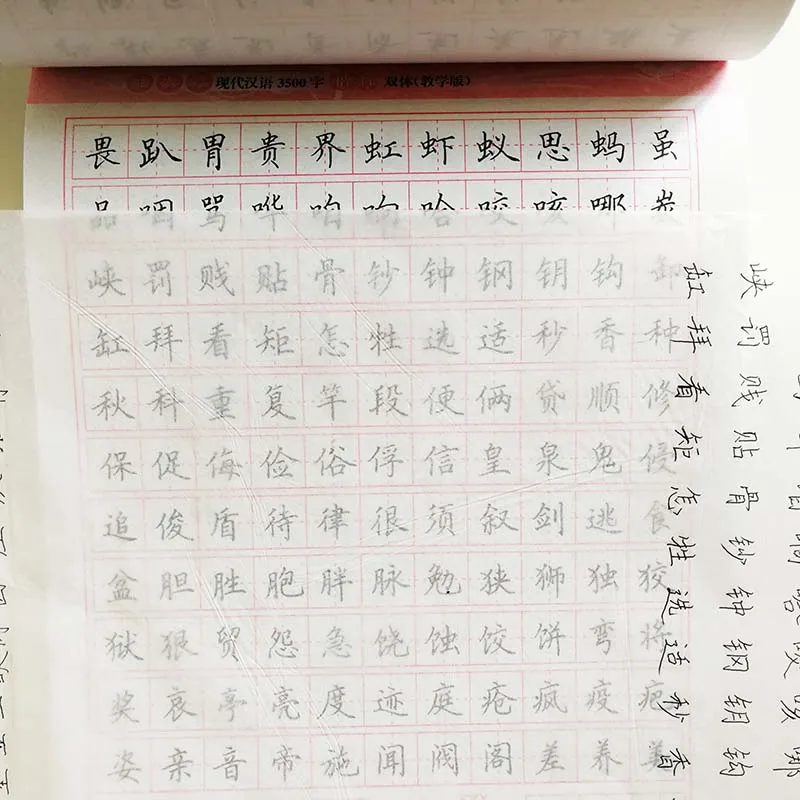 现代汉语3500字 双体(教学版)
畏趴胃贵界虹虾蚁思蚂虽
品咽骂哗咱响哈咬咳哪炭
峡罚贱贴骨钞钟钢钥钩卸
缸拜看矩怎牲选适秒香种
秋科重复竿段便俩贷顺修
保促侮俭俗俘信皇泉鬼侵
追俊盾待律很须叙剑逃食
盆胆胜胞胖脉勉狭狮独狡
狱狠贸怨急饶蚀饺饼弯将
奖哀亭亮度迹庭疮疯疫疤
姿亲音帝施闻阀阁差养美
峡罚贱贴骨钞钟钢钥钩
缸拜看矩怎牲选适秒香